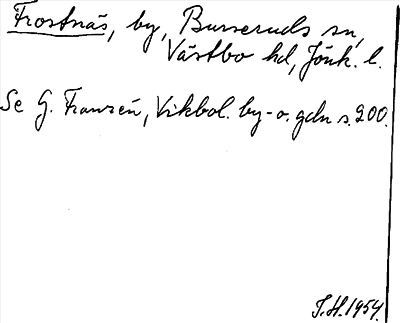 Frostnäs, by, Burseruds sn,
Västbo hd, Jönk. l.
Se G. Franzén, Vikbol. by- o. gdn s. 200.
I.H. 1954.